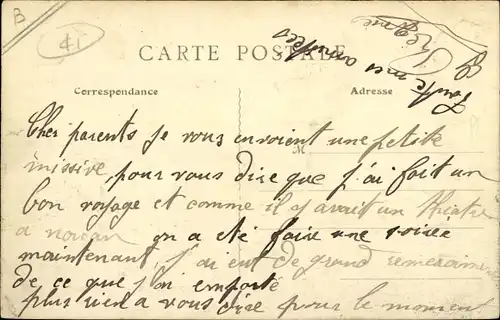 B
41
CARTE POSTALE
Correspondance
Adresse
Cher parents je vous envoient une petite
missive, pour vous dire que j'ai fait un
bon voyage et comme il y avait un théatre
a on a eté faire une soiree
maintenant, j'ai ent de grand
de ce que j'ai emporté
plus rien a vous dire pour le moment